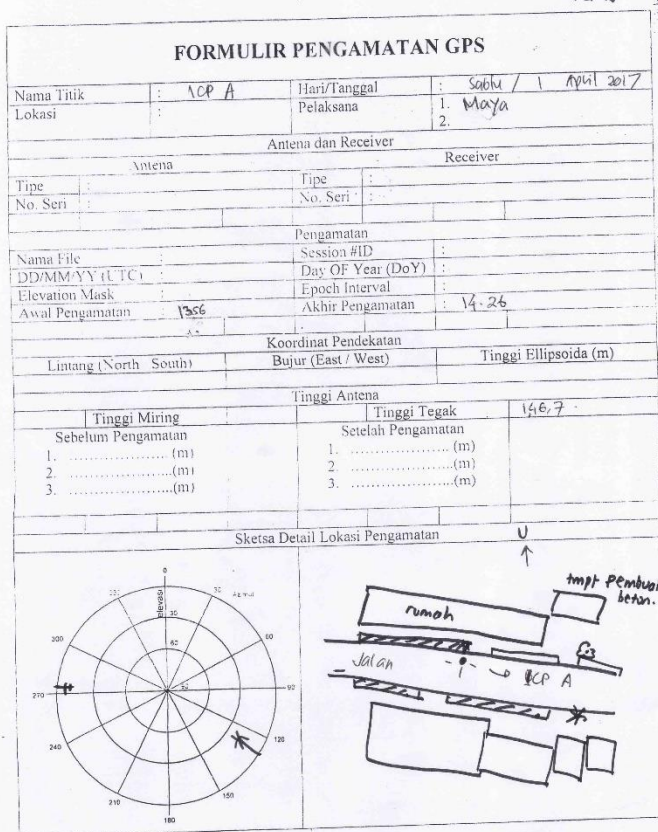 FORMULIR PENGAMATAN GPS
Nama Titik : ICP A Hari/Tanggal : Sabtu / 1 April 2017
Lokasi : Pelaksana 1. Maya
2.
Antena dan Receiver
Antena Receiver
Tipe : Tipe :
No. Seri : No. Seri :
Pengamatan
Nama File : Session #ID :
DD/MM/YY (UTC) : Day OF Year (DoY) :
Elevation Mask : Epoch Interval :
Awal Pengamatan : 1356 Akhir Pengamatan : 14.26
Koordinat Pendekatan
Lintang (North South) Bujur (East / West) Tinggi Ellipsoida (m)
Tinggi Antena
Tinggi Miring Tinggi Tegak 146,7
Sebelum Pengamatan Setelah Pengamatan
1. .................... (m) 1. .................... (m)
2. .................... (m) 2. .................... (m)
3. .................... (m) 3. .................... (m)
Sketsa Detail Lokasi Pengamatan
U
0
elevasi
30
60
60
90
270
240
120
210
150
180
tmpt Pembuat
beton.
rumah
Jalan
ICP A